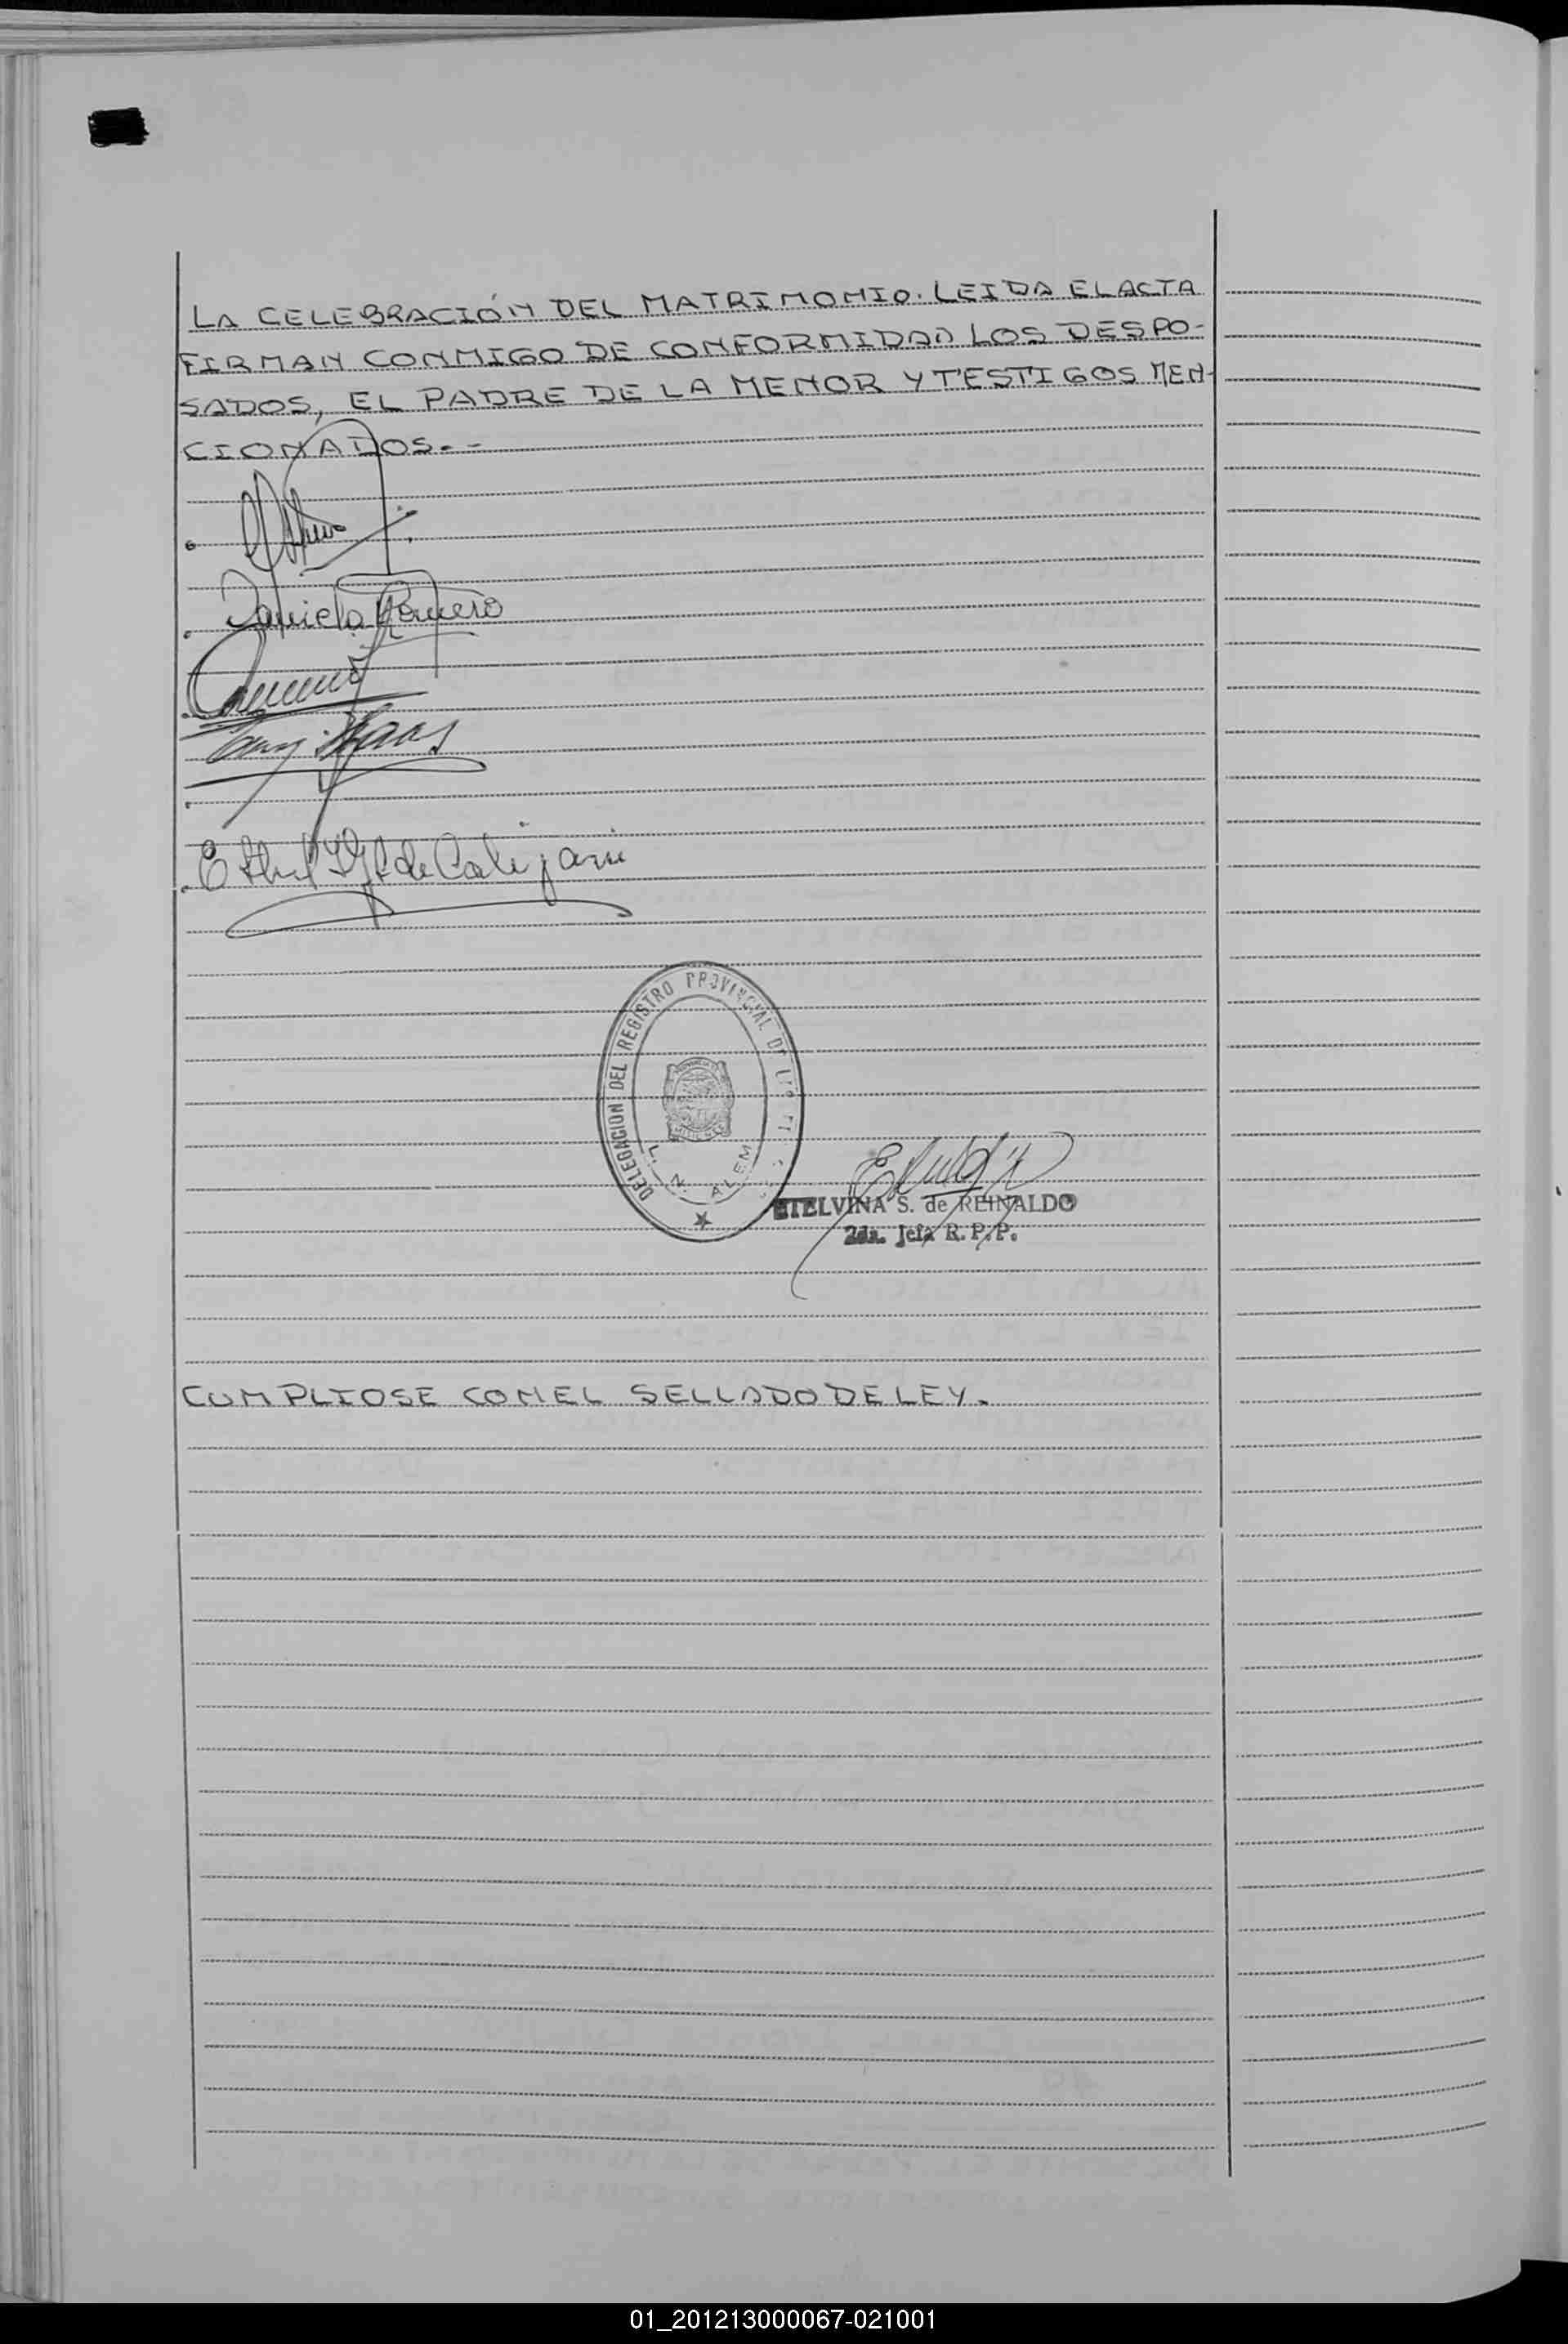 LA CELEBRACIÓN DEL MATRIMONIO. LEIDA EL ACTA
FIRMAN CONMIGO DE CONFORMIDAD LOS DESPO-
SADOS, EL PADRE DE LA MENOR Y TESTIGOS MEN-
CIONADOS.-
Daniela Romero
Haas
de Caligari
DELEGACION DEL REGISTRO PROVINCIAL DE
L. N. ALEM
ETELVINA S. de REINALDO
2da. Jefa R.P.P.
CUMPLIOSE CON EL SELLADO DE LEY.
01_201213000067-021001